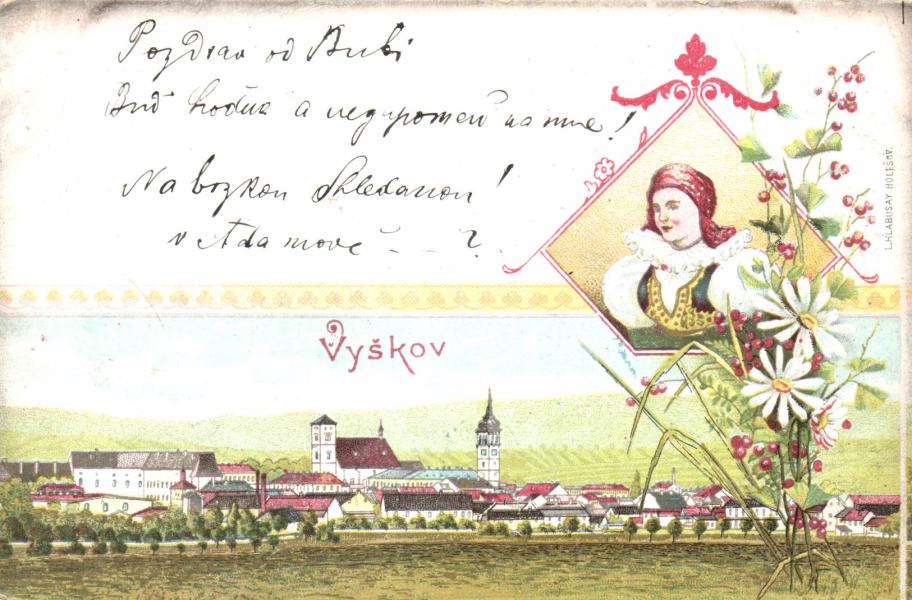 Pozdrav od Bubi
Buď hodna a nezapomeň na mne!
Na brzkou Shledanou!
v Adamově - - ?
Vyškov
L. KLABUSAY HOLEŠOV.